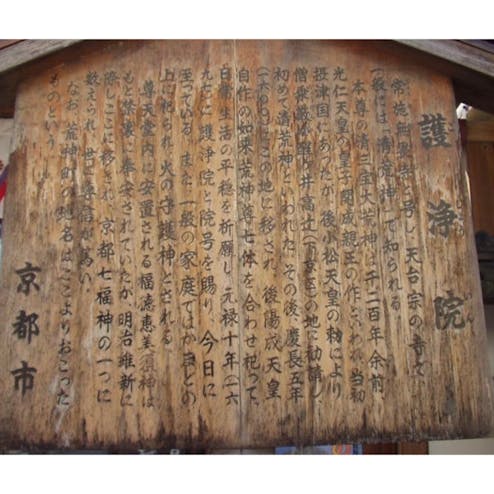 護浄院
常施無畏寺と号し、天台宗の寺で、
一般には「清荒神」で知られる。
本尊の清三宝大荒神は千二百年余前、
光仁天皇の皇子開成親王の作といわれ、当初
摂津国にあったが、後小松天皇の勅により
僧乗厳が本尊を井高辻(下京区)の地に勧請し
初めて清荒神といわれた。その後、慶長五年
(一六〇〇)この地に移され、後陽成天皇
自作の如来荒神尊七体を合わせ祀って、
日常生活の平穏を祈願し、元禄十年(一六
九七)に護浄院と院号を賜り、今日に
至っている。また、一般の家庭ではかまどの
上に祀られ、火の守護神とされる。
尊天堂内に安置される福徳恵美須神は
もと禁裏に奉安されていたが、明治維新に
際しここに移され、京都七福神の一つに
数えられ、世に尊信が高い。
なお、荒神町の町名はここよりおこった
ものという。
京都市